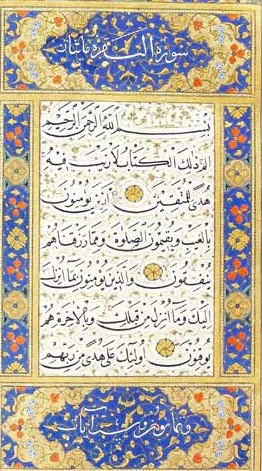 سورة البقرة مائتان
بسم الله الرحمن الرحيم
الم ذلك الكتاب لا ريب فيه
هدى للمتقين الذين يؤمنون
بالغيب ويقيمون الصلوة ومما رزقناهم
ينفقون والذين يؤمنون بما انزل
اليك وما انزل من قبلك وبالاخرة هم
يوقنون اولئك على هدى من ربهم
وثمانون وست آيات